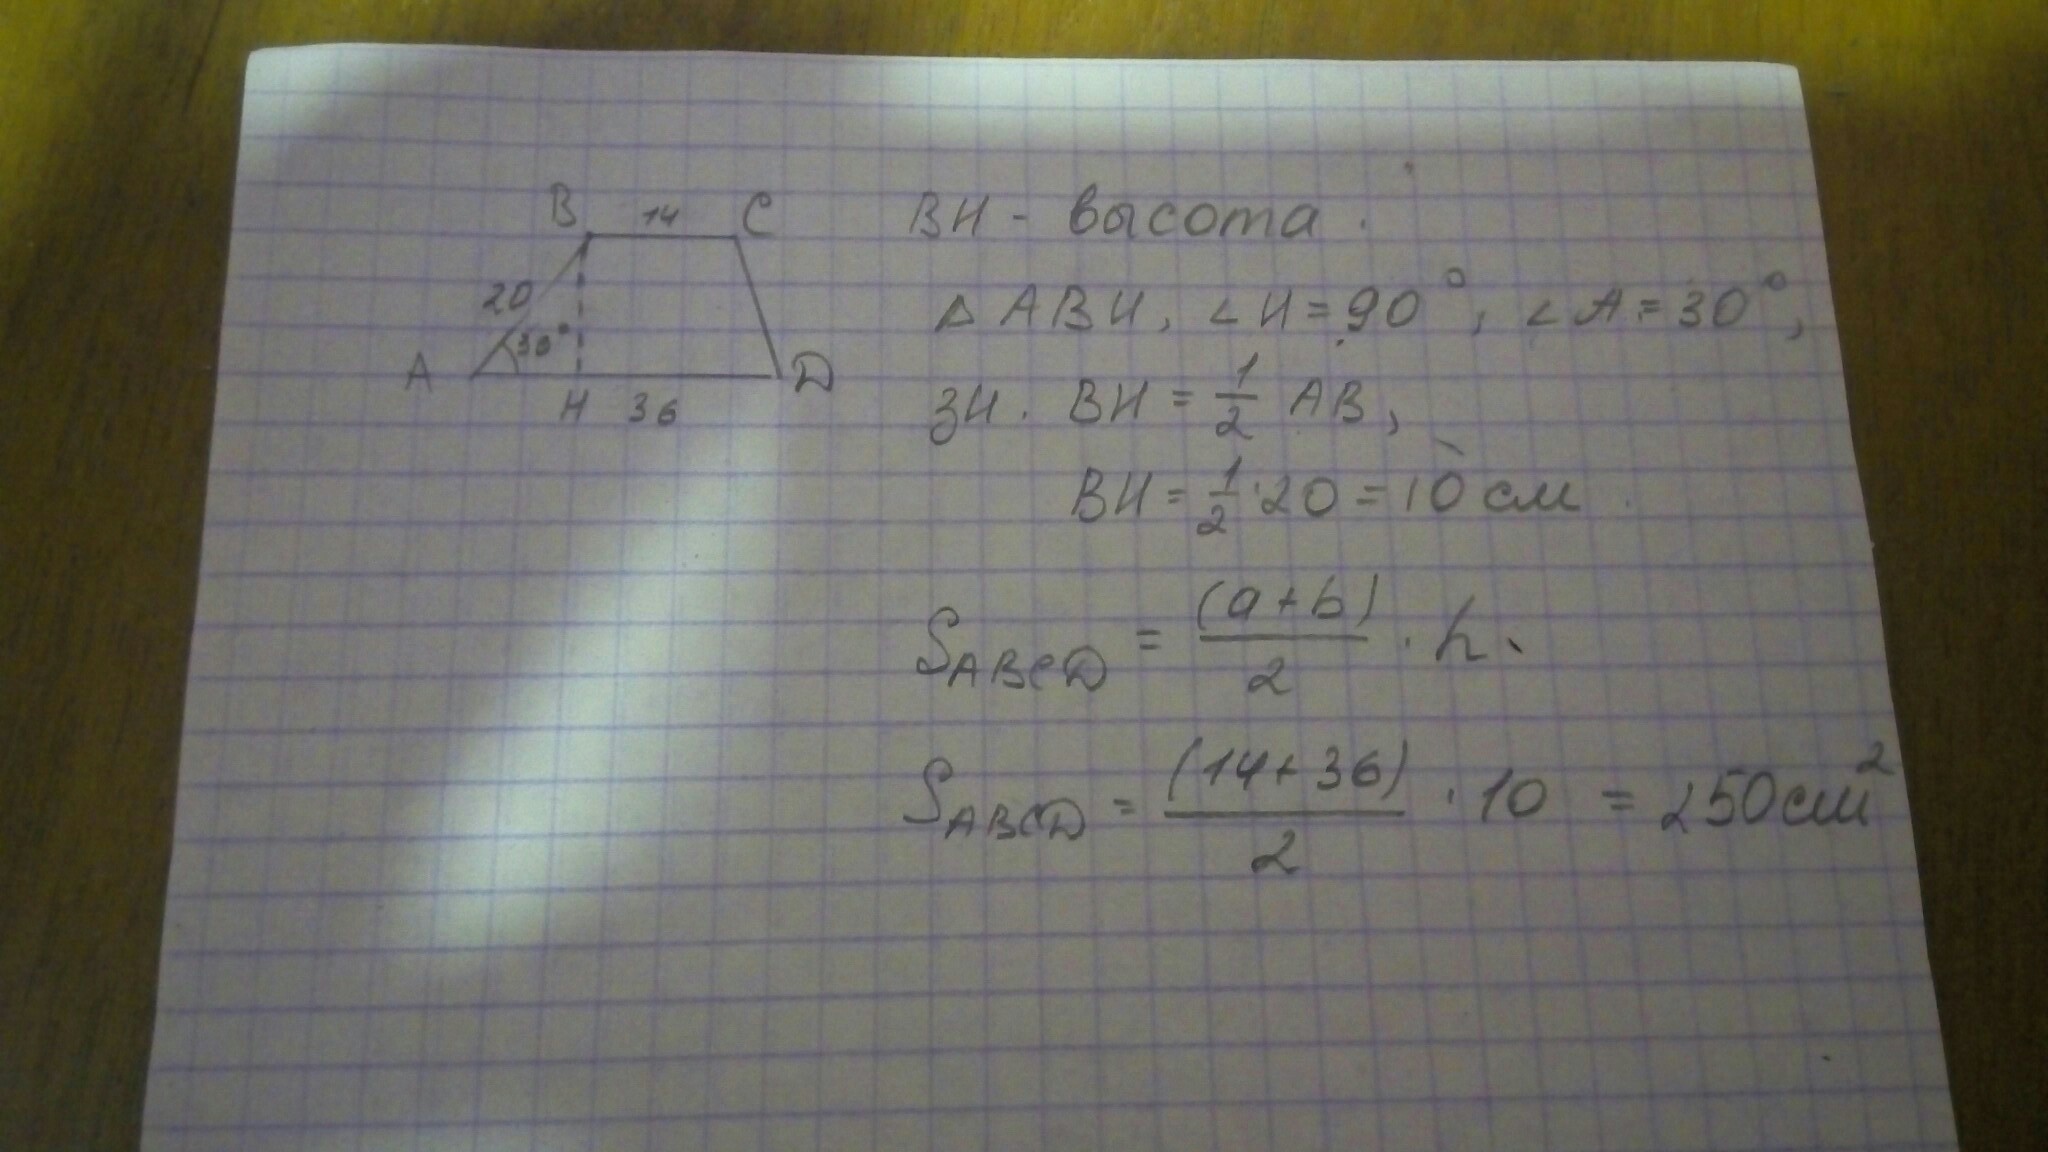 B 14 C
20
30°
A D
H 36
BH - высота.
△ ABH, ∠H = 90°, ∠A = 30°,
зн. BH = 1/2 AB,
BH = 1/2 · 20 = 10 см.
S_ABCD = (a+b)/2 · h.
S_ABCD = (14+36)/2 · 10 = 250 см²